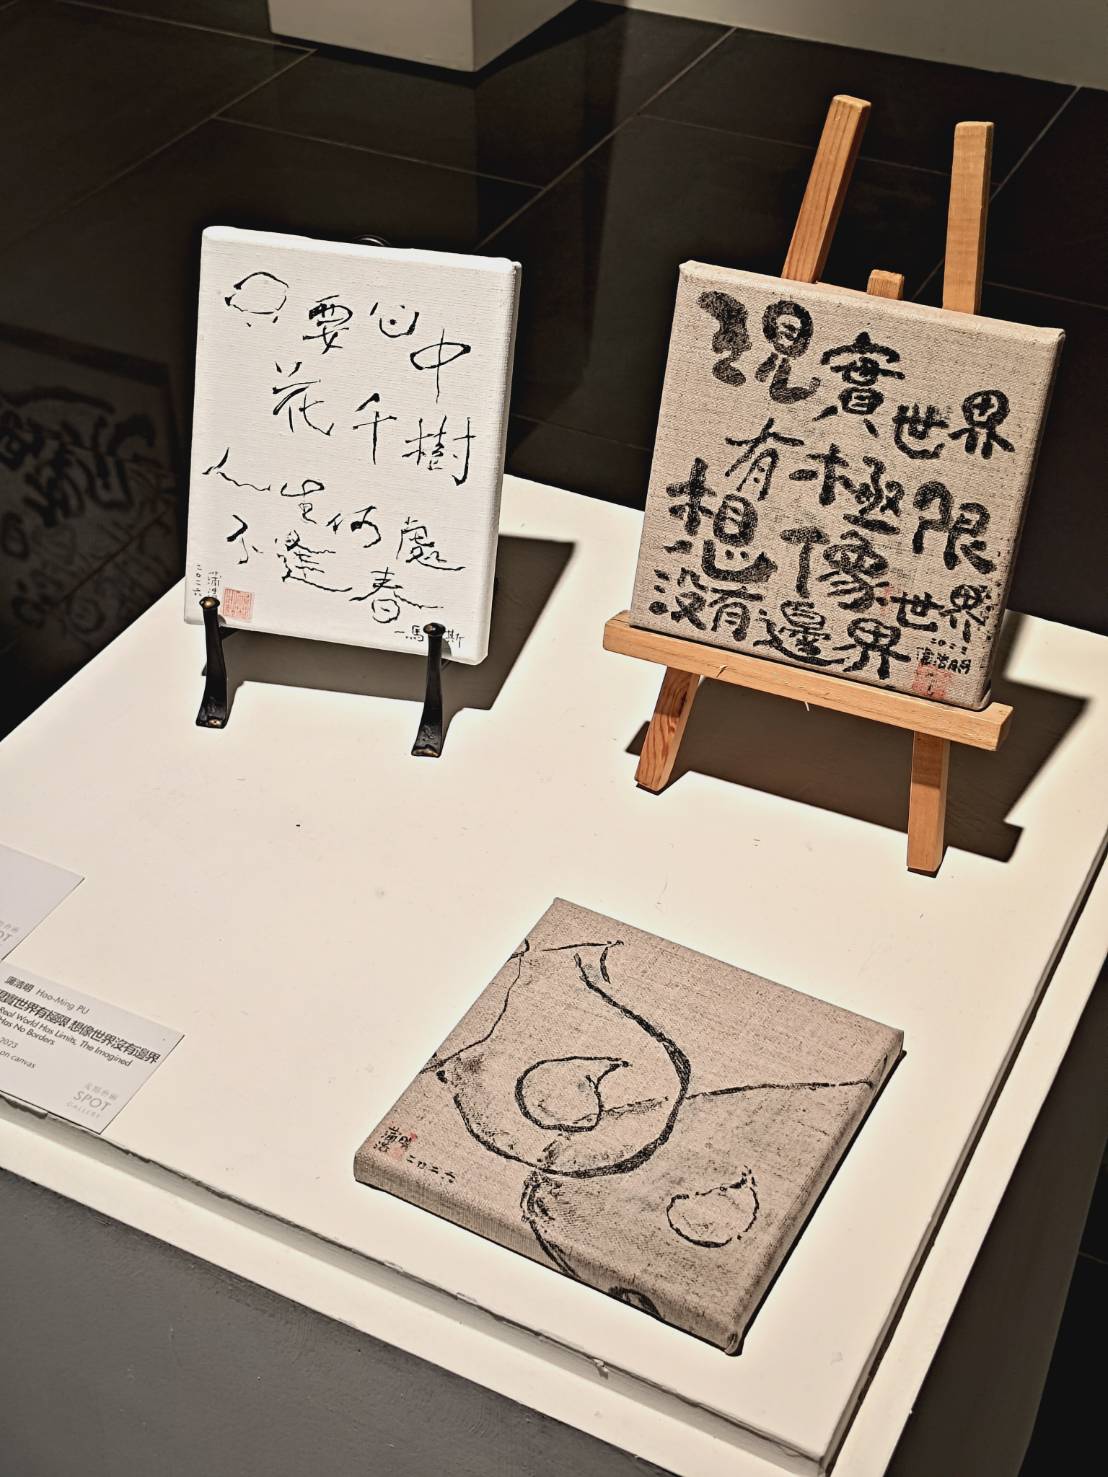 只要心中
花千樹
人生何處
不逢春
二〇二六
蒲浩
馬 斯
現實世界
有極限
想像世界
沒有邊界
2023
蒲浩明
蒲浩明 Hao-Ming PU
現實世界有極限 想像世界沒有邊界
Real World Has Limits, The Imagined
Has No Borders
2023
on canvas
SPOT
GALLERY
蒲浩明
二〇二六